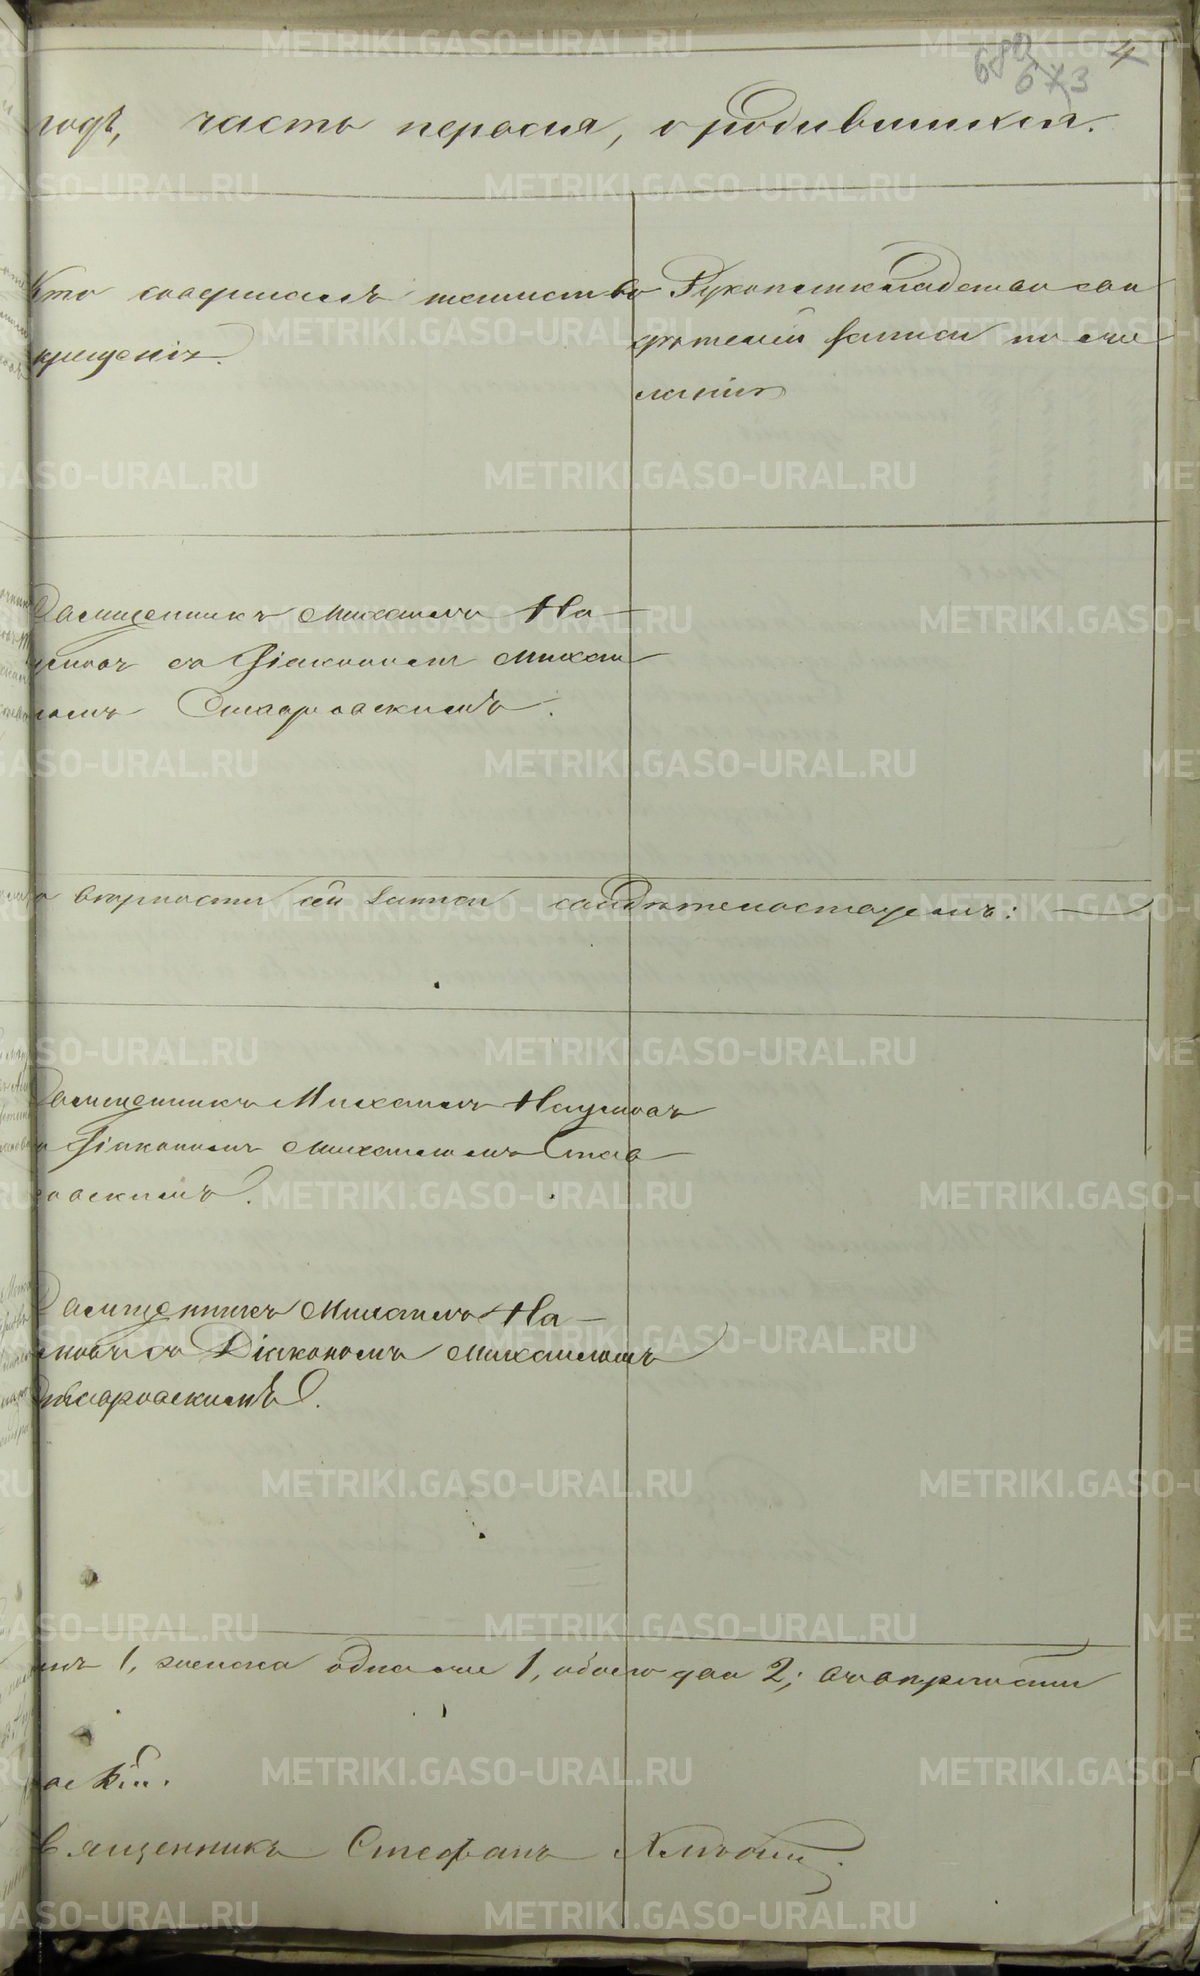 680
673
4
годъ, часть первая, о родившихся.
Кто совершалъ таинство
крещенія.
Рукоприкладство сви
дѣтелей записи по же
ланію
Священникъ Михаилъ На
умовъ съ Діакономъ Михаи
ломъ Ставровскимъ.
вѣрности сей записи свидѣтельствуемъ:
Священникъ Михаилъ Наумовъ
съ Діакономъ Михаиломъ Став
ровскимъ.
Священникъ Михаилъ На
умовъ съ Діакономъ Михаиломъ
Ставровскимъ.
1, женска одна же 1, обоего два 2; въ вѣрности
вскій.
Священникъ Стефанъ